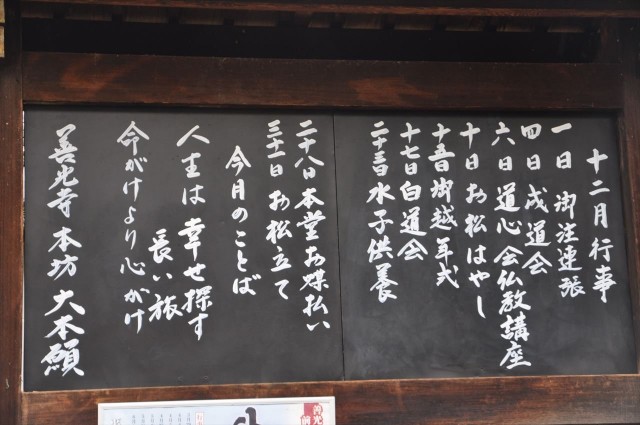 十二月行事
一日 御注連張
四日 成道会
六日 道心会仏教講座
十日 お松はやし
十五日 御越年式
十七日 白道会
二十三日 水子供養
二十八日 本堂お煤払い
三十一日 お松立て
今月のことば
人生は幸せ探す
長い旅
命がけより心がけ
善光寺 本坊 大本願